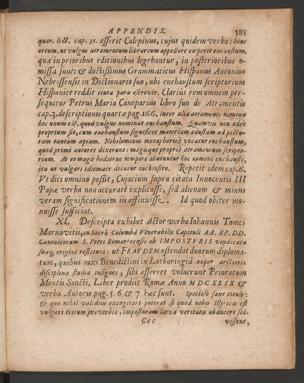 APPENDIX. 385
quer. lect. cap. 31. asserit Calepinus, cujus quidem verba: hinc
ortum, ut vulgus atramentum librarium appellare cœperit encaustum,
quæ in prioribus editionibus legebantur, in posterioribus o-
missa sunt: & doctissimus Grammaticus Hispanus Antonius
Nebrissensis in Dictionario suo, ubi enchaustum scriptorium
Hispanice reddit tinta para escrevir. Clarius rem omnem per-
sequutur Petrus Maria Caneparius libro suo de Atramentis
cap. 3. descriptionis quartæ pag. 166. inter alia atramenti nomina
hoc unum est, quod vulgus nominat encaustum. Quamvis non adeo
proprium sit, cum enchaustum significet materiam adustam ad pictu-
ram tantum aptam. Nihilominus metaphorice vocatur enchaustum,
quod prima autores dixerunt: magisque proprie atramentum scripto-
rium. At ex magis hodierno tempore abutuntur hoc nomine enchausti,
ita ut vulgari idiomate dicatur inchiostro. Repetit idem cap. 6.
Vt dici omnino possit, Cujacium supra citata Innocentii III
Papæ verba non accurate explicasse, sed alienam & minus
veram significationem iis affinxisse. Id quod obiter mo-
nuisse sufficiat.
XI. Descripta exhibet Actor verba Iohannis Tomci
Marnavitii, in Sacra Columba Venerabilis Capituli AA. PP. DD.
Canonicorum S. Petri Romæ recensi ab IMPOSTURIS vindicata
suæq; origini restituta: ut FRAUDEM ostendat duorum diploma-
tum, quibus nixi Benedictini in Lotharingia nuper arctioris
disciplina studio insignes, sibi asserere voluerunt Prioratum
Montis Sancti, Liber prodiit Romæ ANNO MDCXXIX &
verba Autoris pag. 5. 6 & 7 hæc sunt.
& quo nihil validius excogitari poterat, si quod nobis Illyricis est
vulgari tritum proverbio, imposturam larva veritatis obducere sci-
Ccc vissent,